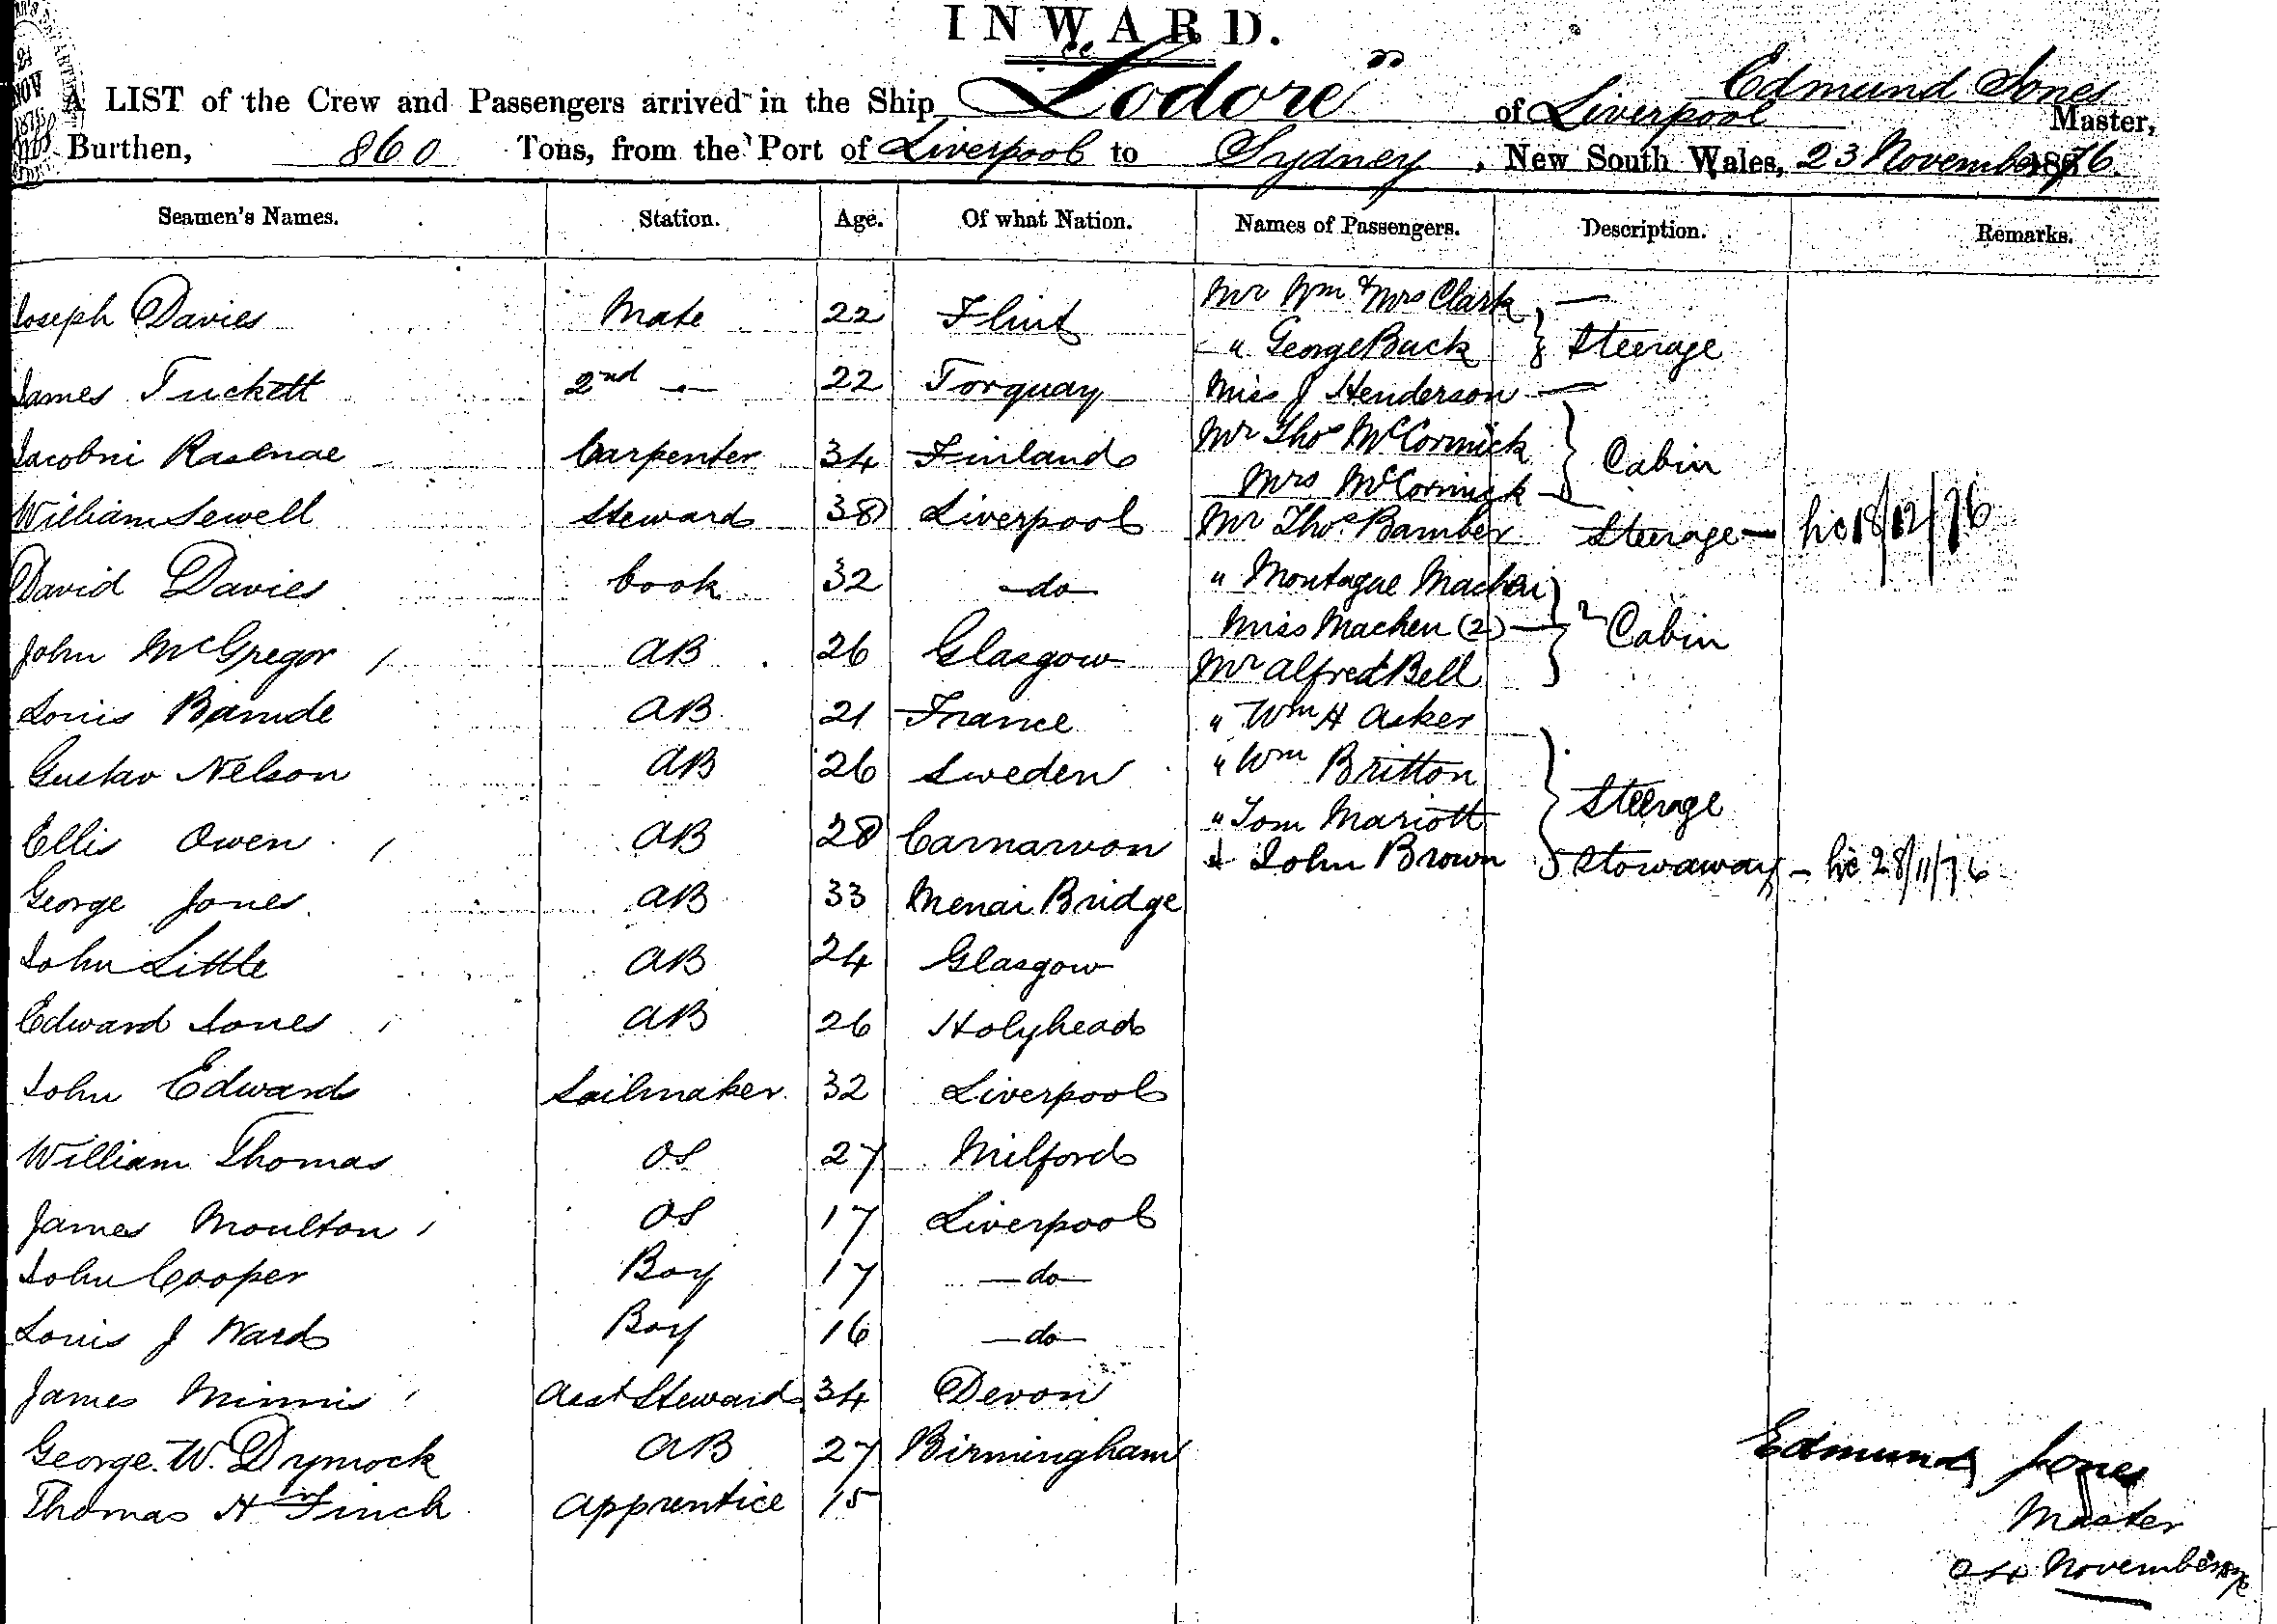 INWARD.
A LIST of the Crew and Passengers arrived in the Ship "Lodore" of Liverpool Edmund Jones Master,
Burthen, 860 Tons, from the Port of Liverpool to Sydney, New South Wales, 23 November 1876.
Seamen's Names. Station. Age. Of what Nation. Names of Passengers. Description. Remarks.
Joseph Davies Mate 22 Flint Mr Wm & Mrs Clark —
" George Buck } Steerage
James Tuckett 2nd — 22 Torquay Miss J Henderson —
Jacobni 34 Finland Mr Thos McCormick } Cabin
Carpenter Mrs McCormick
William Sewell Steward 38 Liverpool Mr Thos Bamber Steerage — 18/12/76
David Davies Cook 32 —do— " Montague Machen
Miss Machen (2) — } Cabin
John McGregor AB 26 Glasgow Mr Alfred Bell
Louis AB 21 France " Wm H Asker
Gustav Nelson AB 26 Sweden " Wm Britton
" Tom Mariott } Steerage
Ellis Owen AB 28 Carnarvon John Brown Stowaway — 28/11/76
George Jones AB 33 Menai Bridge
John Little AB 24 Glasgow
Edward Jones AB 26 Holyhead
John Edwards Sailmaker 32 Liverpool
William Thomas OS 27 Milford
James Moulton OS 17 Liverpool
John Cooper Boy 17 —do—
Louis J Ward Boy 16 —do—
James Minnis Asst Steward 34 Devon
George W. Dymock AB 27 Birmingham
Thomas H Finch Apprentice 15
Edmund Jones
Master
24 November